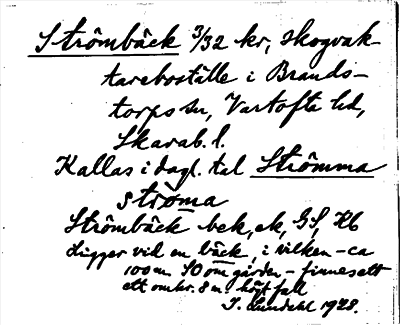 Strömbäck 3/32 kr, skogvak-
tareboställe i Brands-
torps sn, Vartofta hd,
Skarab. l.
Kallas i dagl. tal Strömma
strøma
Strömbäck bek, ek, GS, Kb
Ligger vid en bäck, i vilken - ca
100 m SO om gården - finnes ett
ett omkr. 8 m. högt fall
J. Lundahl 1928.